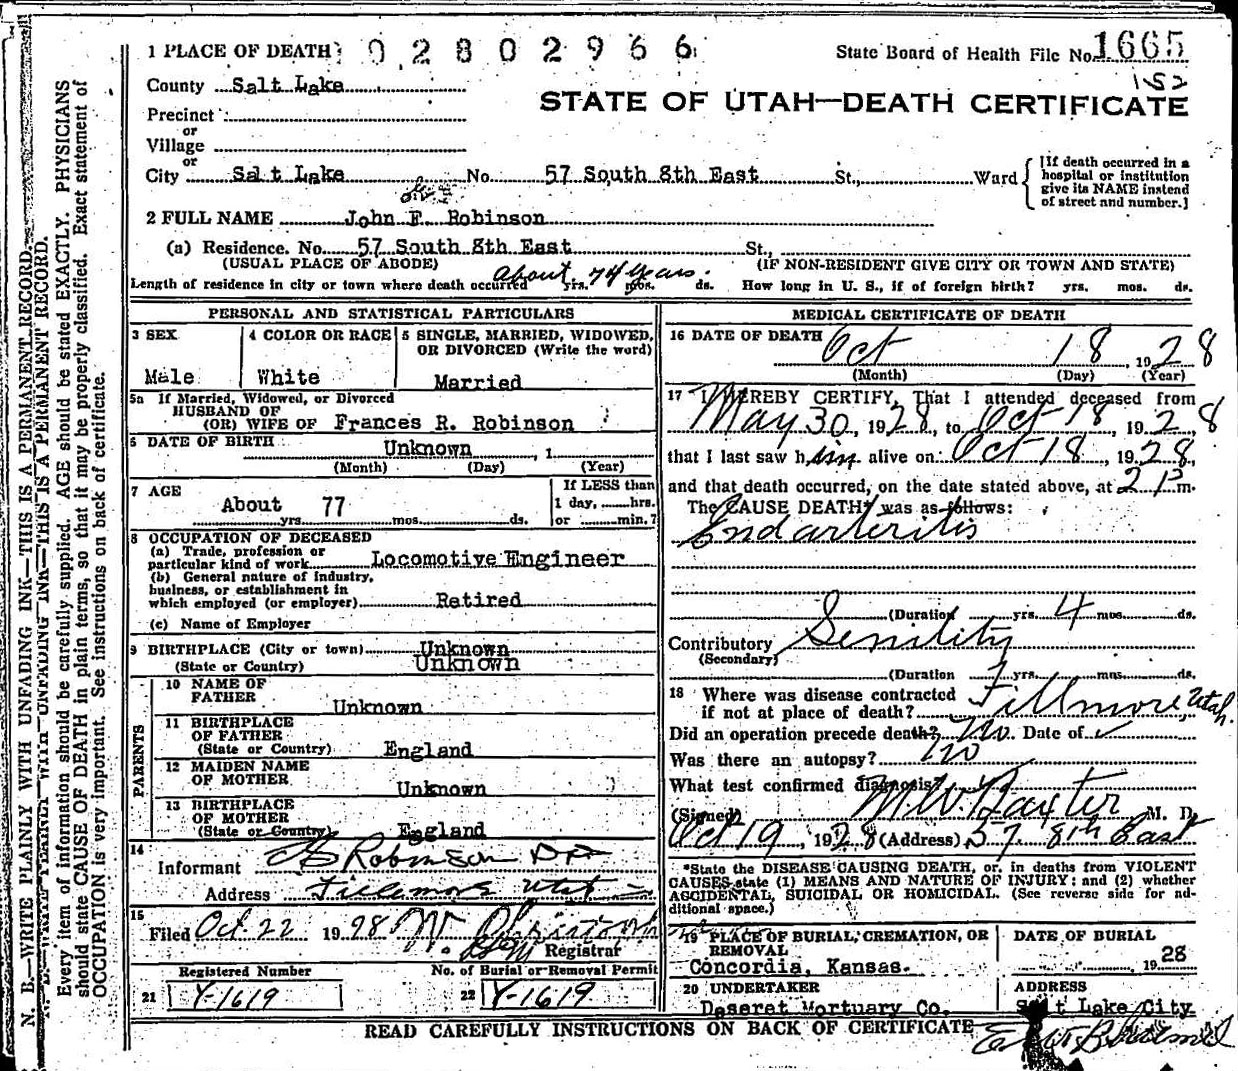 1 PLACE OF DEATH 02802966 State Board of Health File No. 1665
152
County Salt Lake
STATE OF UTAH—DEATH CERTIFICATE
Precinct
or
Village
or
City Salt Lake No. 57 South 8th East St., Ward [If death occurred in a hospital or institution give its NAME instead of street and number.]
2 FULL NAME John F. Robinson
(a) Residence. No. 57 South 8th East St,
(USUAL PLACE OF ABODE) (IF NON-RESIDENT GIVE CITY OR TOWN AND STATE)
Length of residence in city or town where death occurred About 74 Years. yrs. mos. ds. How long in U. S., if of foreign birth? yrs. mos. ds.
PERSONAL AND STATISTICAL PARTICULARS
3 SEX 4 COLOR OR RACE 5 SINGLE, MARRIED, WIDOWED,
OR DIVORCED (Write the word)
Male White Married
5a If Married, Widowed, or Divorced
HUSBAND OF
(OR) WIFE OF Frances R. Robinson
6 DATE OF BIRTH Unknown, 1
(Month) (Day) (Year)
7 AGE If LESS than
About 77 1 day, hrs.
yrs. mos. ds. or min.?
8 OCCUPATION OF DECEASED
(a) Trade, profession or
particular kind of work Locomotive Engineer
(b) General nature of industry,
business, or establishment in
which employed (or employer) Retired
(c) Name of Employer
9 BIRTHPLACE (City or town) Unknown
(State or Country) Unknown
PARENTS
10 NAME OF
FATHER Unknown
11 BIRTHPLACE
OF FATHER
(State or Country) England
12 MAIDEN NAME
OF MOTHER Unknown
13 BIRTHPLACE
OF MOTHER
(State or Country) England
14
Informant Robinson
Address Fillmore Utah
15
Filed Oct 22 1928
Registrar
Registered Number No. of Burial or Removal Permit
21 Y-1619 22 Y-1619
MEDICAL CERTIFICATE OF DEATH
16 DATE OF DEATH Oct 18, 1928
(Month) (Day) (Year)
17 I HEREBY CERTIFY, That I attended deceased from
May 30, 1928, to Oct 18, 1928,
that I last saw him alive on Oct 18, 1928,
and that death occurred, on the date stated above, at 2 P m.
The CAUSE DEATH* was as follows:
Endarteritis
(Duration yrs. 4 mos. ds.
Contributory Senility
(Secondary)
(Duration yrs. mos. ds.
18 Where was disease contracted
if not at place of death? Fillmore, Utah.
Did an operation precede death? No. Date of
Was there an autopsy? no
What test confirmed diagnosis?
(Signed) M. W. Baxter M. D.
Oct 19, 1928 (Address) 57. 8th East
*State the DISEASE CAUSING DEATH, or, in deaths from VIOLENT
CAUSES state (1) MEANS AND NATURE OF INJURY; and (2) whether
ACCIDENTAL, SUICIDAL OR HOMICIDAL. (See reverse side for ad-
ditional space.)
19 PLACE OF BURIAL, CREMATION, OR DATE OF BURIAL
REMOVAL
Concordia, Kansas. 1928
20 UNDERTAKER ADDRESS
Deseret Mortuary Co. Salt Lake City
READ CAREFULLY INSTRUCTIONS ON BACK OF CERTIFICATE
N. B.—WRITE PLAINLY WITH UNFADING INK—THIS IS A PERMANENT RECORD.
Every item of information should be carefully supplied. AGE should be stated EXACTLY. PHYSICIANS
should state CAUSE OF DEATH in plain terms, so that it may be properly classified. Exact statement of
OCCUPATION is very important. See instructions on back of certificate.